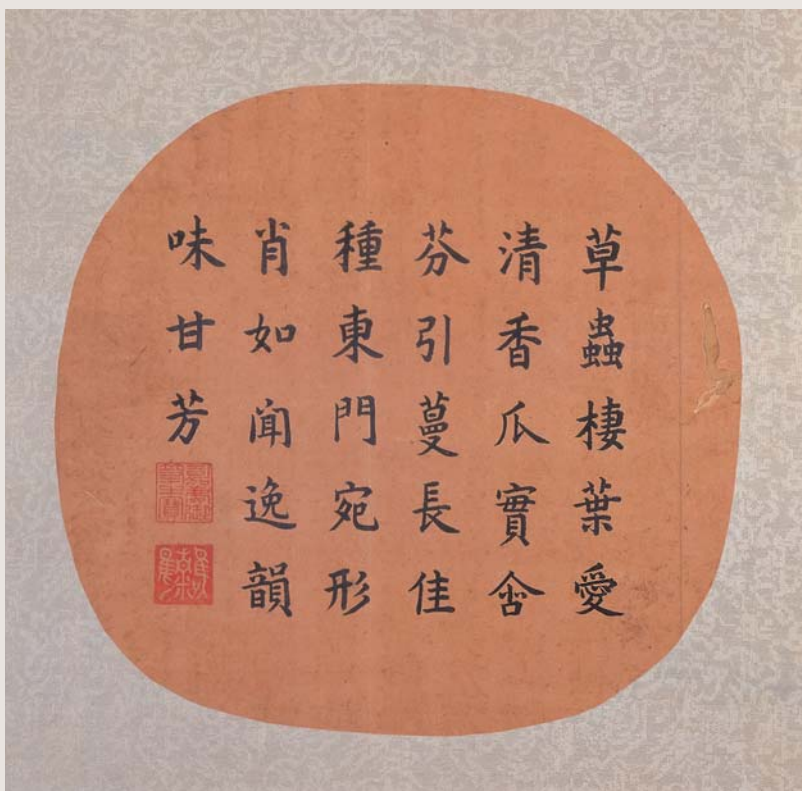 草蟲棲葉愛
清香瓜實含
芬引蔓長佳
種東門宛形
肖如闻逸韻
味甘芳